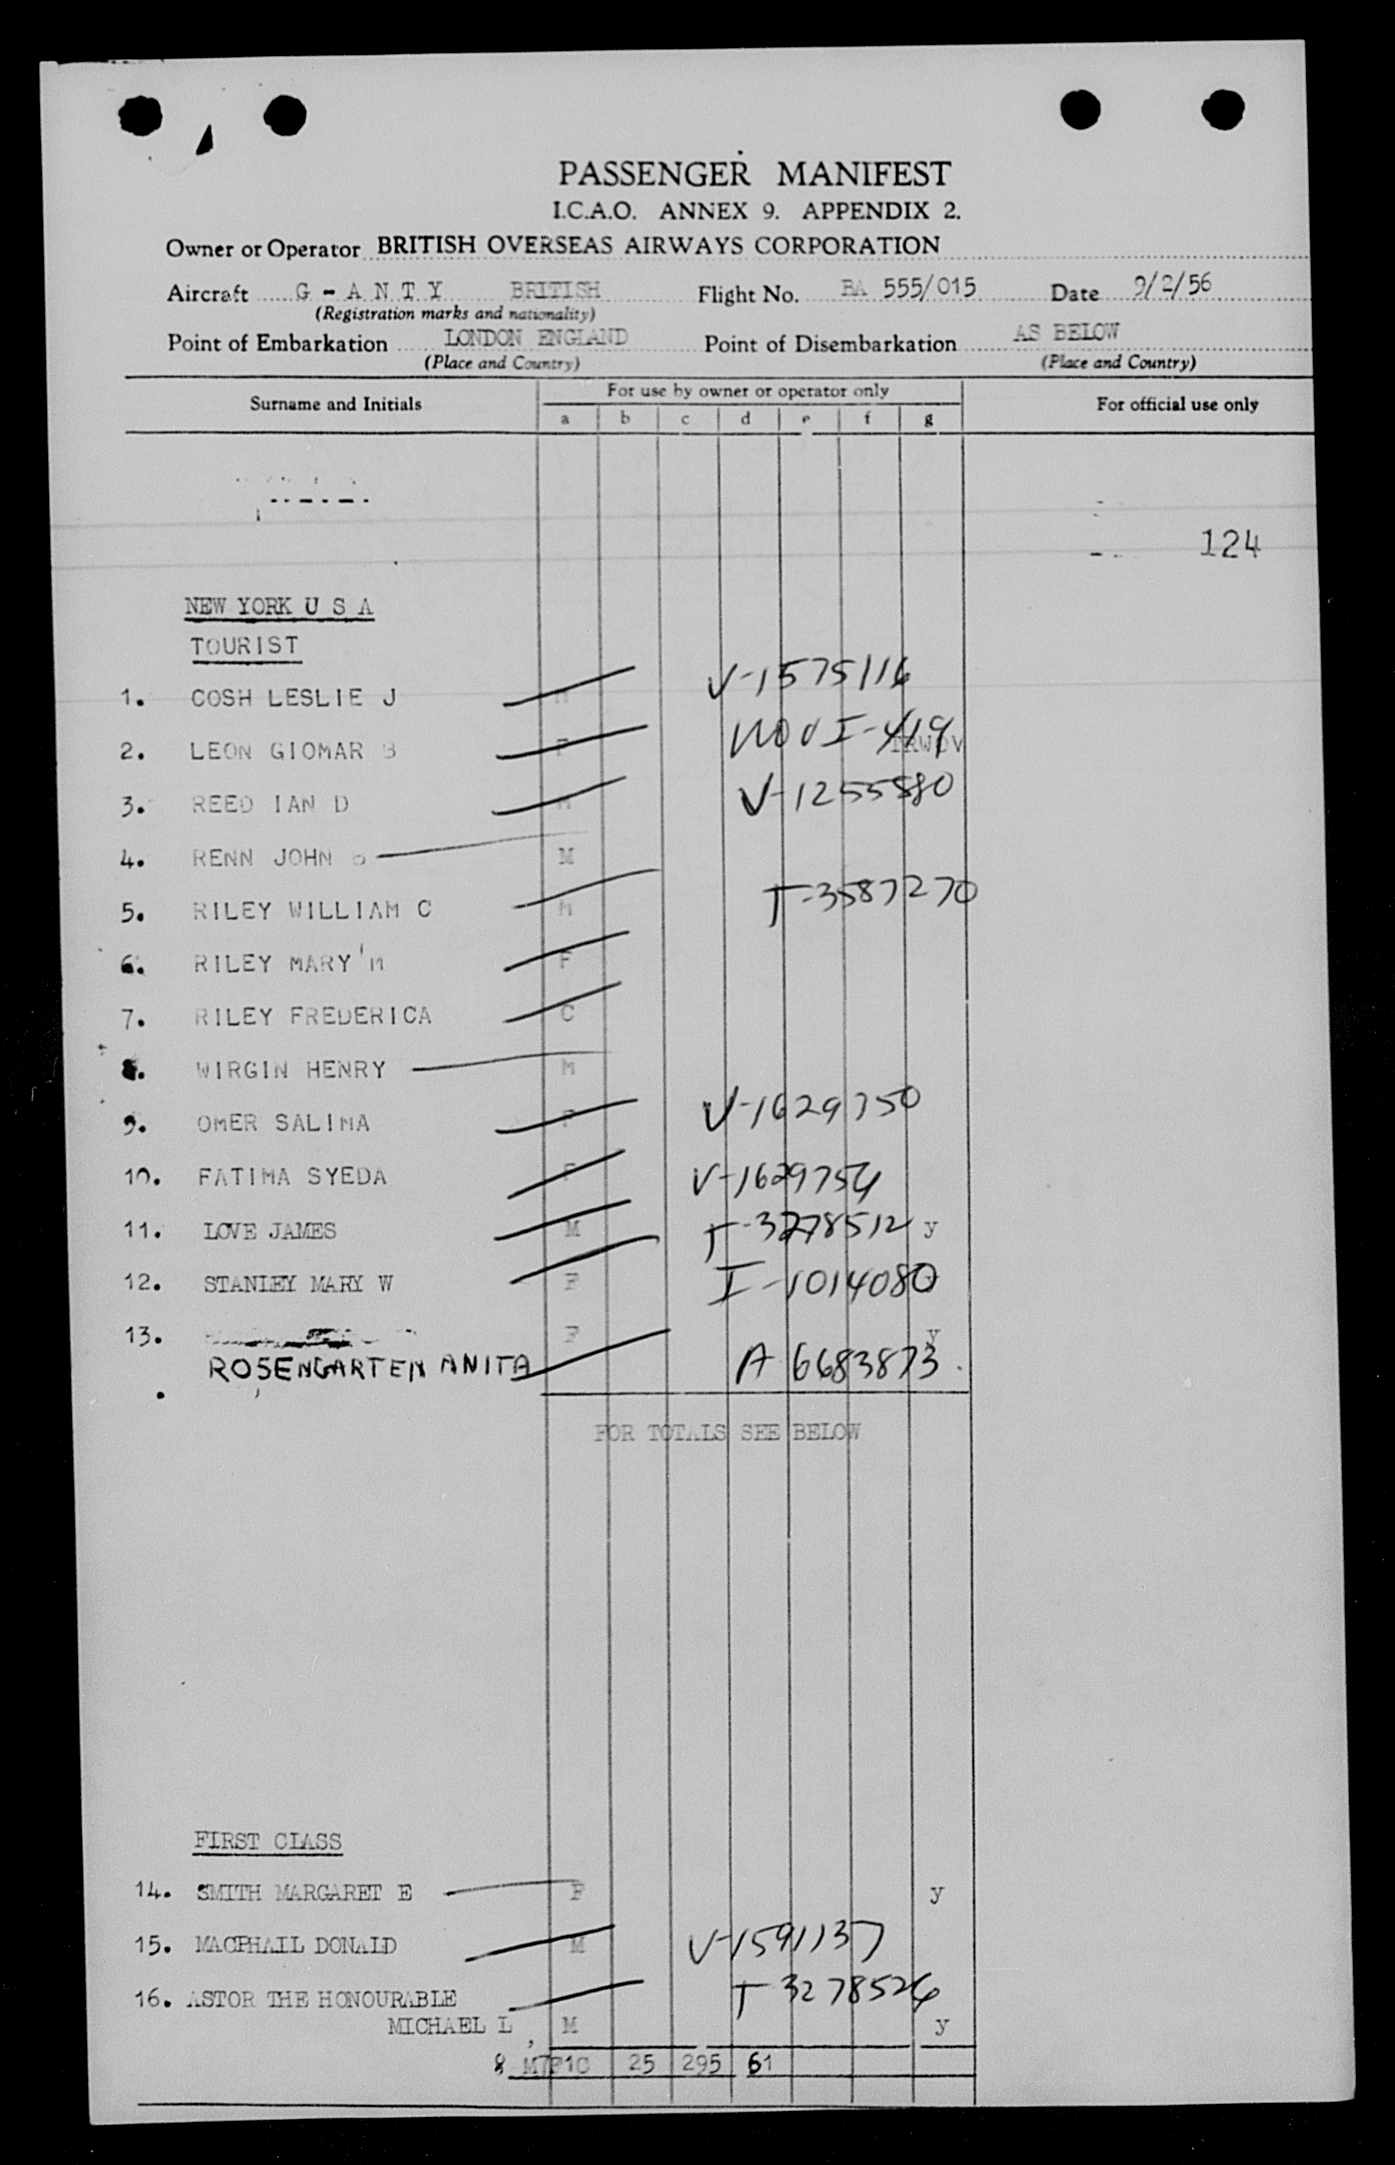 PASSENGER MANIFEST
I.C.A.O. ANNEX 9. APPENDIX 2.
Owner or Operator BRITISH OVERSEAS AIRWAYS CORPORATION
Aircraft G - A N T Y BRITISH Flight No. BA 555/015 Date 9/2/56
(Registration marks and nationality)
Point of Embarkation LONDON ENGLAND Point of Disembarkation AS BELOW
(Place and Country) (Place and Country)
Surname and Initials For use by owner or operator only For official use only
a b c d e f g
124
NEW YORK U S A
TOURIST
1. COSH LESLIE J M V-1575116
2. LEON GIOMAR B F I-419
3. REED IAN D M V-1255880
4. RENN JOHN M
5. RILEY WILLIAM C M T-3587270
6. RILEY MARY'M F
7. RILEY FREDERICA C
8. WIRGIN HENRY M
9. OMER SALIMA F V-1629750
10. FATIMA SYEDA F V-1629754
11. LOVE JAMES M T-3278512 y
12. STANLEY MARY W F I-1014080
13. F y
ROSENGARTEN ANITA A 6683873
FOR TOTALS SEE BELOW
FIRST CLASS
14. SMITH MARGARET E F y
15. MACPHAIL DONALD M V-1591137
16. ASTOR THE HONOURABLE T 3278526
MICHAEL L M y
8 M7F1C 25 295 61